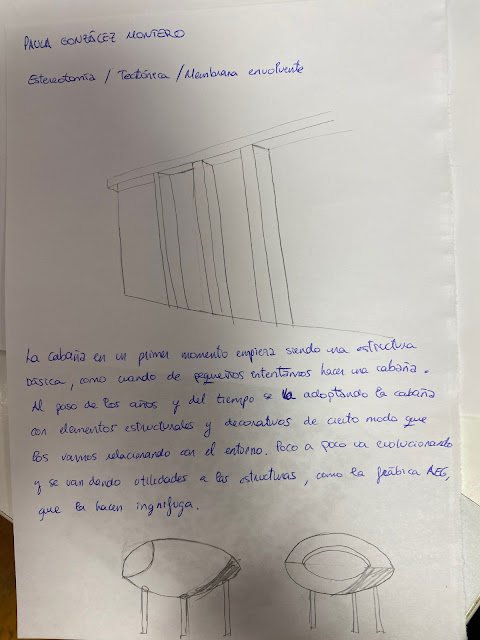 PAULA GONZÁLEZ MONTERO
Estereotomía / Tectónica / Membrana envolvente
La cabaña en un primer momento empieza siendo una estructura
básica, como cuando de pequeños intentamos hacer una cabaña.
Al paso de los años y del tiempo se va adoptando la cabaña
con elementos estructurales y decorativos de cierto modo que
los vamos relacionando con el entorno. Poco a poco va evolucionando
y se van dando utilidades a las estructuras, como la frábica AEG,
que la hacen ingnífuga.